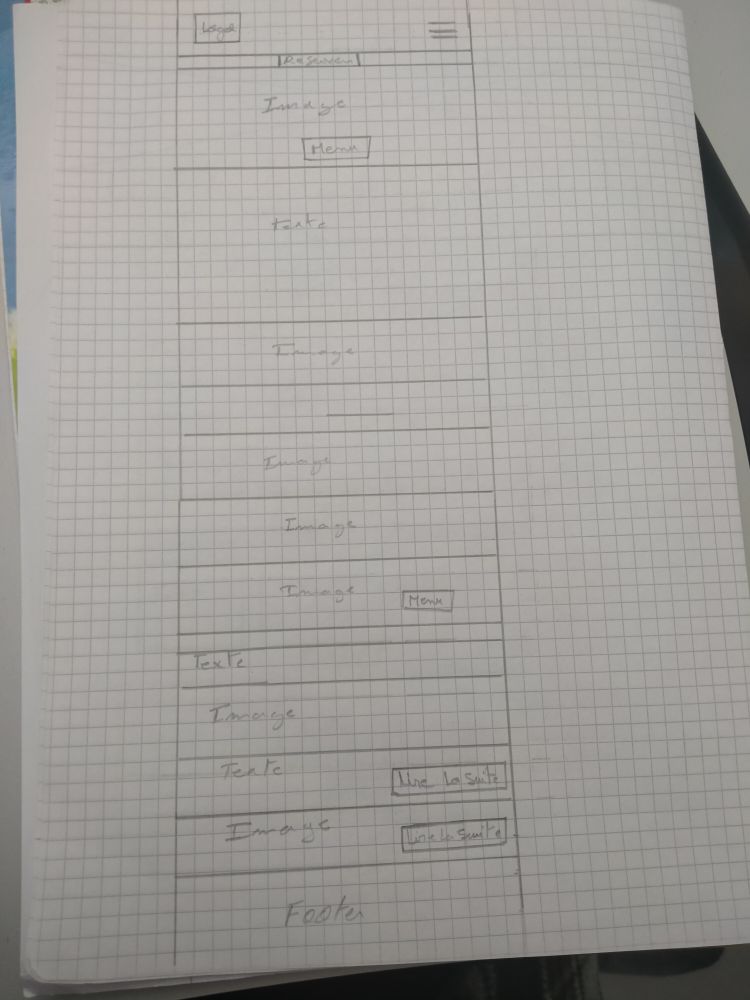 Logo
Reserver
Image
Menu
Texte
Image
Image
Image
Image
Menu
Texte
Image
Texte
Lire La Suite
Image
Lire La Suite
Footer